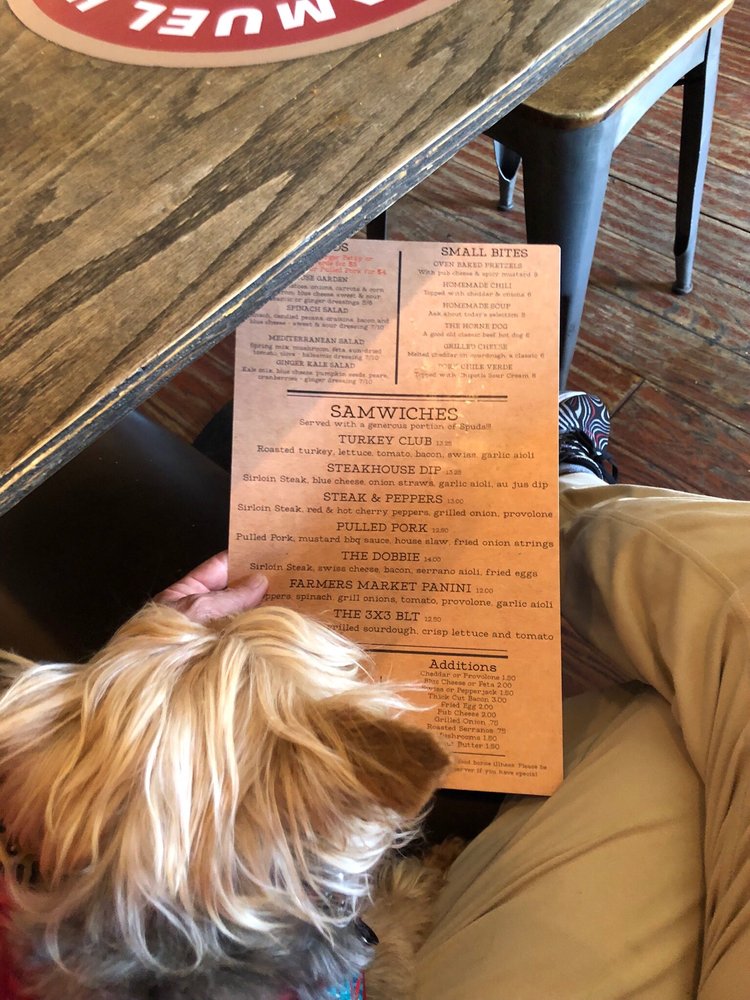 SAMUEL
DS
Burger Patty or
for $3
Pulled Pork for $4
HOUSE GARDEN
tomatoes, onions, carrots & corn
blue cheese, sweet & sour
balsamic or ginger dressings 5/8
SPINACH SALAD
Spinach, candied pecans, craisins, bacon, and
blue cheese - sweet & sour dressing 7/10
MEDITERRANEAN SALAD
Spring mix, mushroom, feta, sun-dried
tomato, olive - balsamic dressing 7/10
GINGER KALE SALAD
Kale mix, blue cheese, pumpkin seeds, pears,
cranberries - ginger dressing 7/10
SMALL BITES
OVEN BAKED PRETZELS
With pub cheese & spicy mustard 9
HOMEMADE CHILI
Topped with cheddar & onions 6
HOMEMADE SOUP
Ask about today's selection 5
THE HORNE DOG
A good old classic beef hot dog 6
GRILLED CHEESE
Melted cheddar on sourdough, a classic 6
PORK CHILE VERDE
Topped with Chipotle Sour Cream 8
SAMWICHES
Served with a generous portion of Spuds!!!
TURKEY CLUB 13.25
Roasted turkey, lettuce, tomato, bacon, swiss, garlic aioli
STEAKHOUSE DIP 13.25
Sirloin Steak, blue cheese, onion straws, garlic aioli, au jus dip
STEAK & PEPPERS 13.00
Sirloin Steak, red & hot cherry peppers, grilled onion, provolone
PULLED PORK 12.50
Pulled Pork, mustard bbq sauce, house slaw, fried onion strings
THE DOBBIE 14.00
Sirloin Steak, swiss cheese, bacon, serrano aioli, fried eggs
FARMERS MARKET PANINI 12.00
peppers, spinach, grill onions, tomato, provolone, garlic aioli
THE 3X3 BLT 12.50
grilled sourdough, crisp lettuce and tomato
Additions
Cheddar or Provolone 1.50
Blue Cheese or Feta 2.00
Swiss or Pepperjack 1.50
Thick Cut Bacon 3.00
Fried Egg 2.00
Pub Cheese 2.00
Grilled Onion .75
Roasted Serranos .75
Mushrooms 1.50
Butter 1.50
food borne illness. Please be
server if you have special